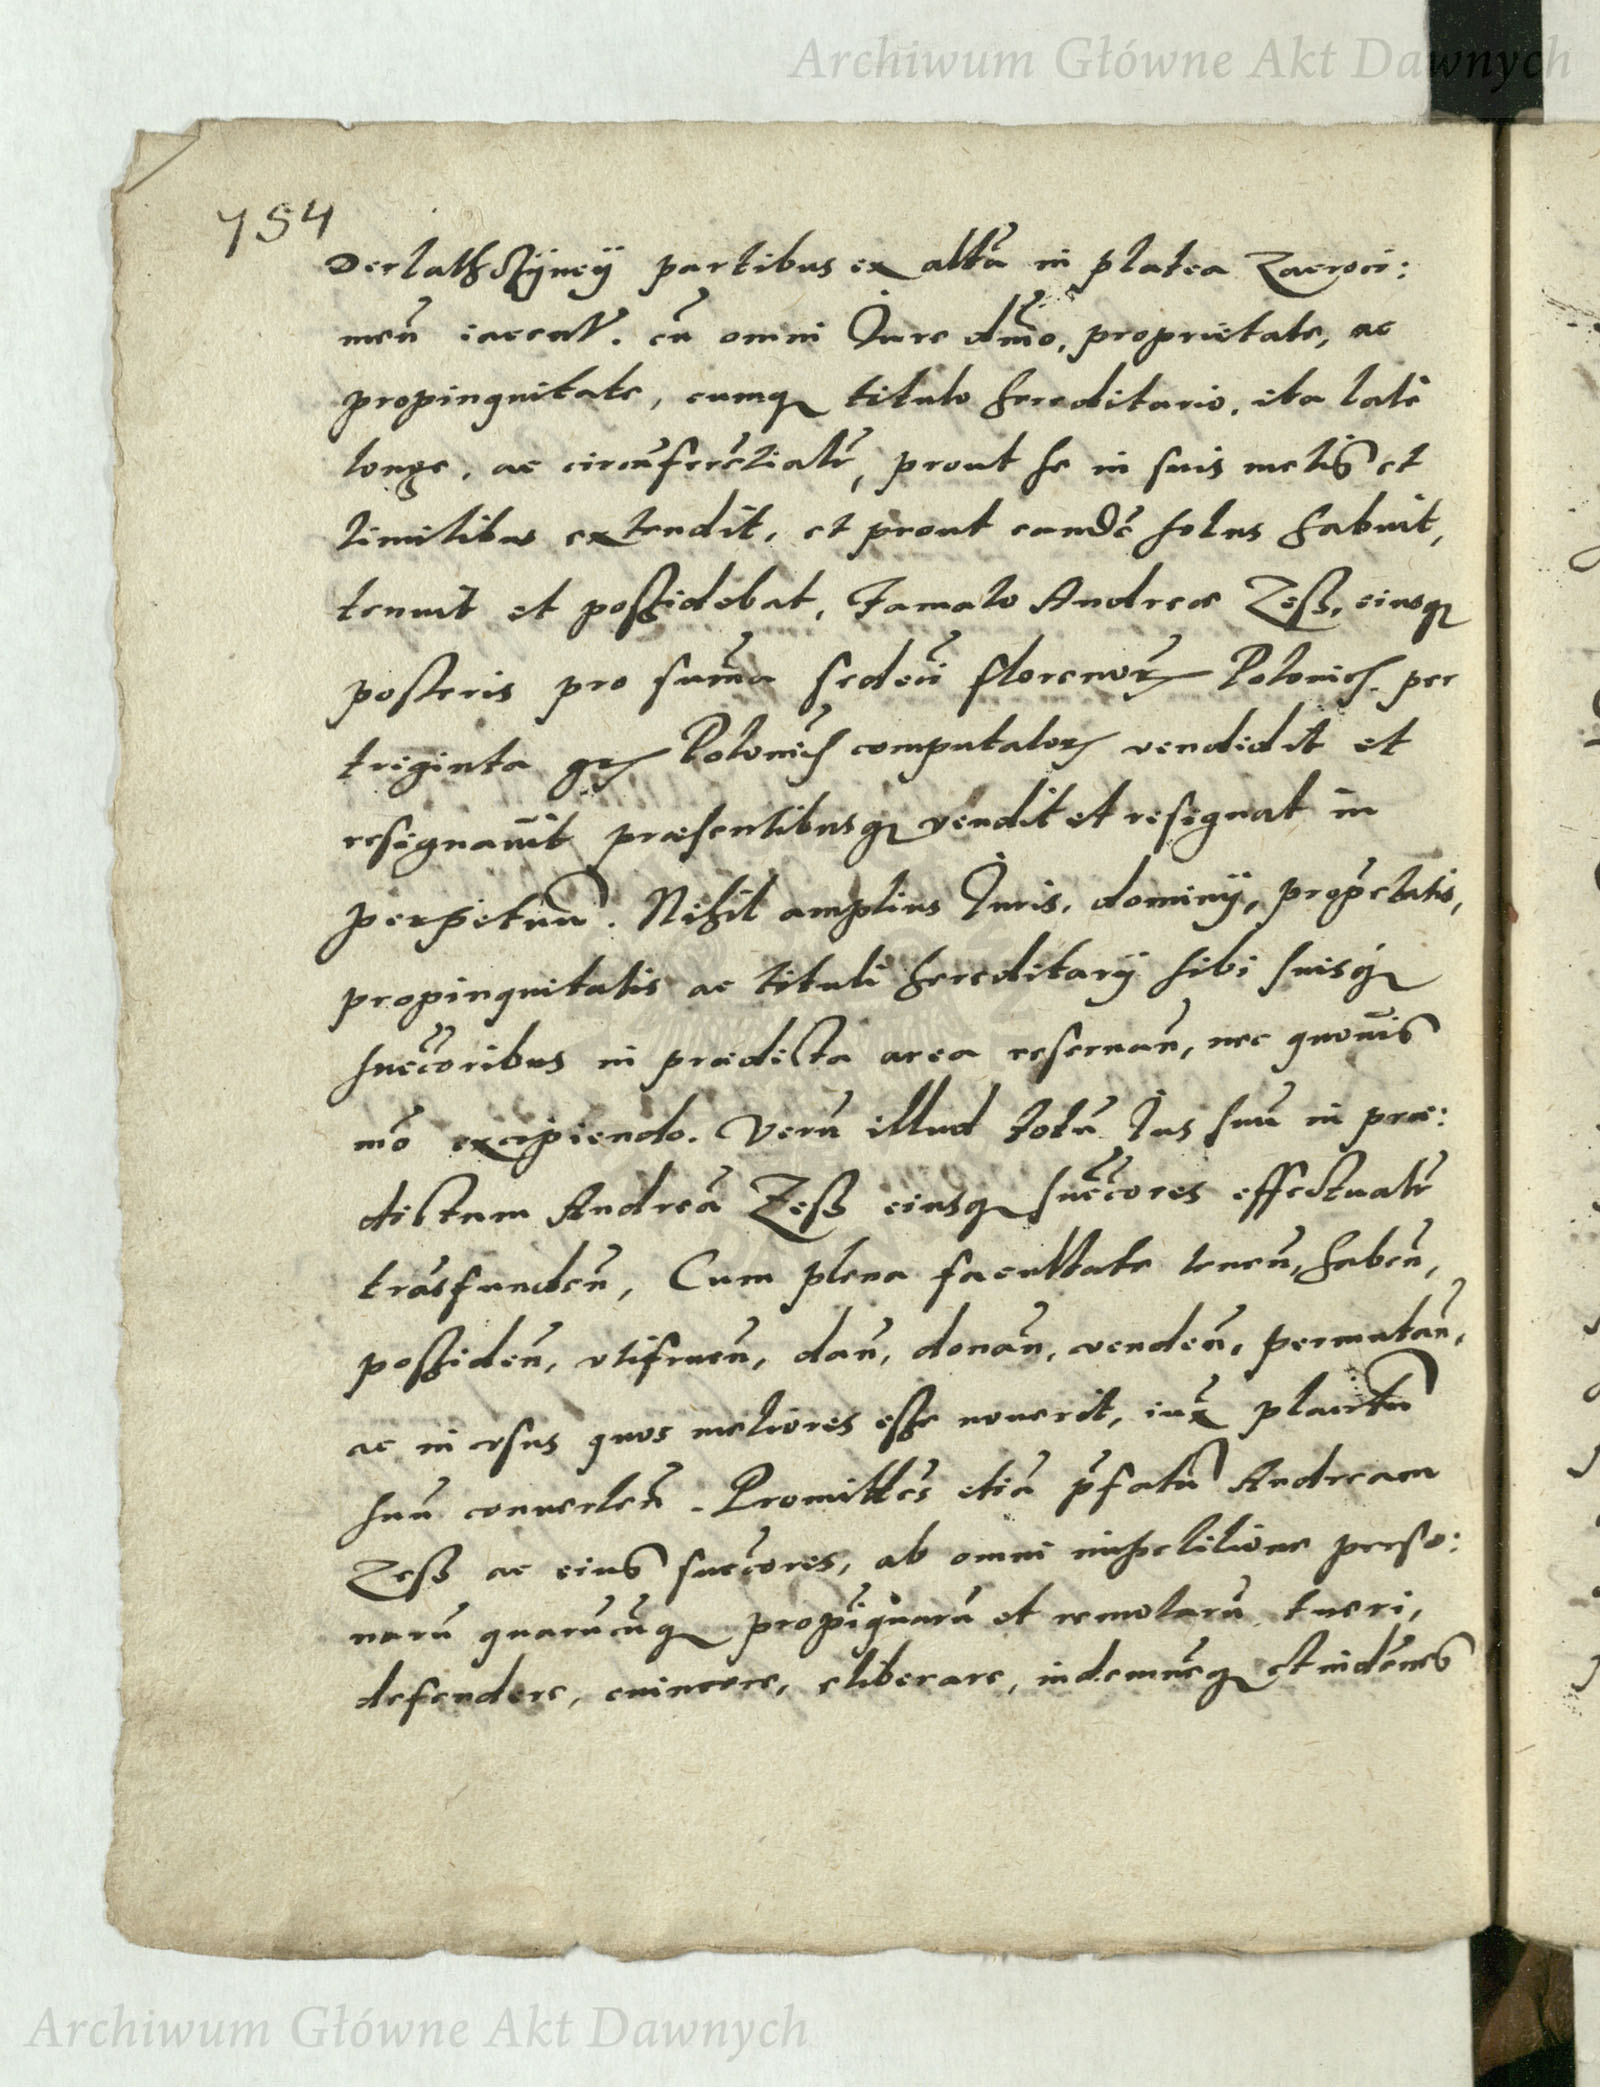 Archiwum Główne Akt Dawnych
754
partibus ex altã in platea Zacroci:
meñ iaceñ. cũ omni Jure dm̃o, proprietate, ac
propinquitate, cumq titulo hereditario, ita late
longe, ac circũferẽtialr̃, prout se in suis metis et
limitibus extendit, et prout eandẽ solus habuit,
tenuit et possidebat, Famato Andreæ Zesß, eiusq
posteris pro sum̃a sedeci florenorꝝ Polonich. per
triginta grꝭ Polonich computatorꝝ vendidit et
resignavit præsentibusq vendit et resignat in
perpetuũ. Nihil amplius Juris, dominij, propˀetatis,
propinquitatis ac tituli hereditarij sibi suisq
succ̃oribus in prædicta area reseruañ, nec quouis
mõ excipiendo. Verũ illud totũ Jus suũ in præ:
dictum Andreã Zesß eiusq succ̃ores effectualr̃
trãsfundeñ, Cum plena facultate teneñ, habeñ,
possideñ, vtifrueñ, dañ, donañ, vendeñ, permutañ,
ac in vsus quos meliores esse nouerit, iux̃ placitũ
suũ conuerteñ. Promittẽs etiã p̃fatũ Andream
Zesß ac eius succ̃ores, ab omni impetitione perso:
narũ quarũcũq propĩquarũ et remotarũ tueri,
defendere, euincere, eliberare, indemnẽq et indẽnes
Archiwum Główne Akt Dawnych